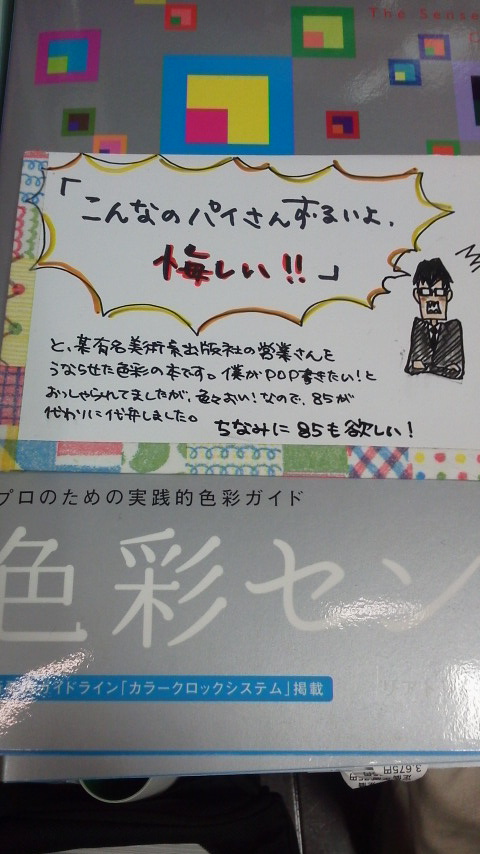 The Sense
「こんなのパイさんずるいよ、
悔しい!!」
と、某有名美術系出版社の営業さんを
うならせた色彩の本です。僕がPOP書きたい!と
おっしゃられてましたが、色々おい!なので、85が
代わりに代弁しました。
ちなみに85も欲しい!
プロのための実践的色彩ガイド
色彩セン
ガイドライン「カラークロックシステム」掲載
3,675円